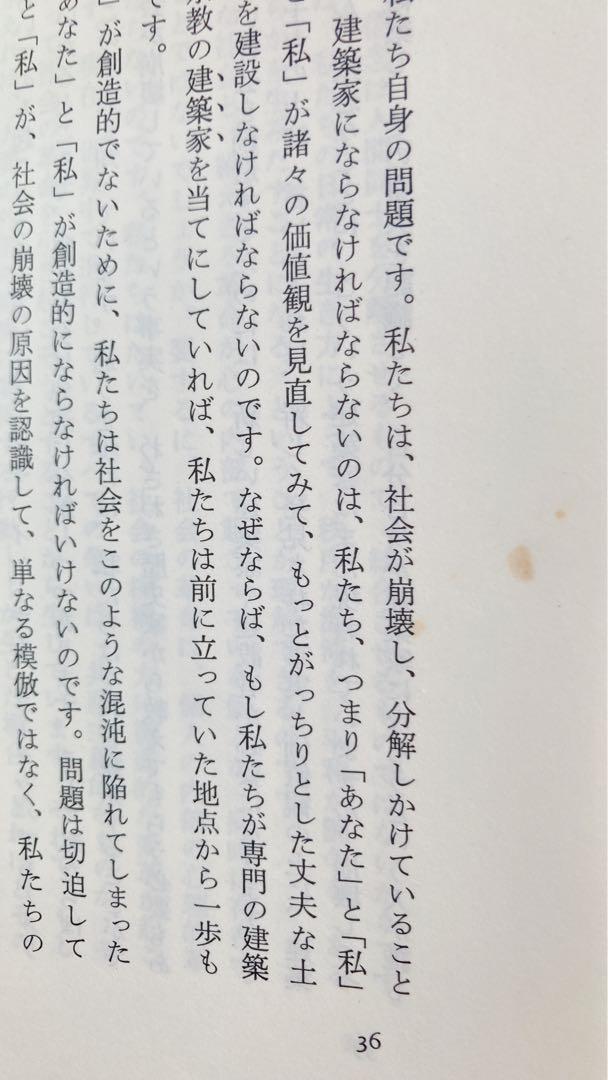 私たち自身の問題です。私たちは、社会が崩壊し、分解しかけていること
建築家にならなければならないのは、私たち、つまり「あなた」と「私」
と「私」が諸々の価値観を見直してみて、もっとがっちりとした丈夫な土
を建設しなければならないのです。なぜならば、もし私たちが専門の建築
教の建築家を当てにしていれば、私たちは前に立っていた地点から一歩も
です。
」が創造的でないために、私たちは社会をこのような混沌に陥れてしまった
あなた」と「私」が創造的にならなければいけないのです。問題は切迫して
と「私」が、社会の崩壊の原因を認識して、単なる模倣ではなく、私たちの
36